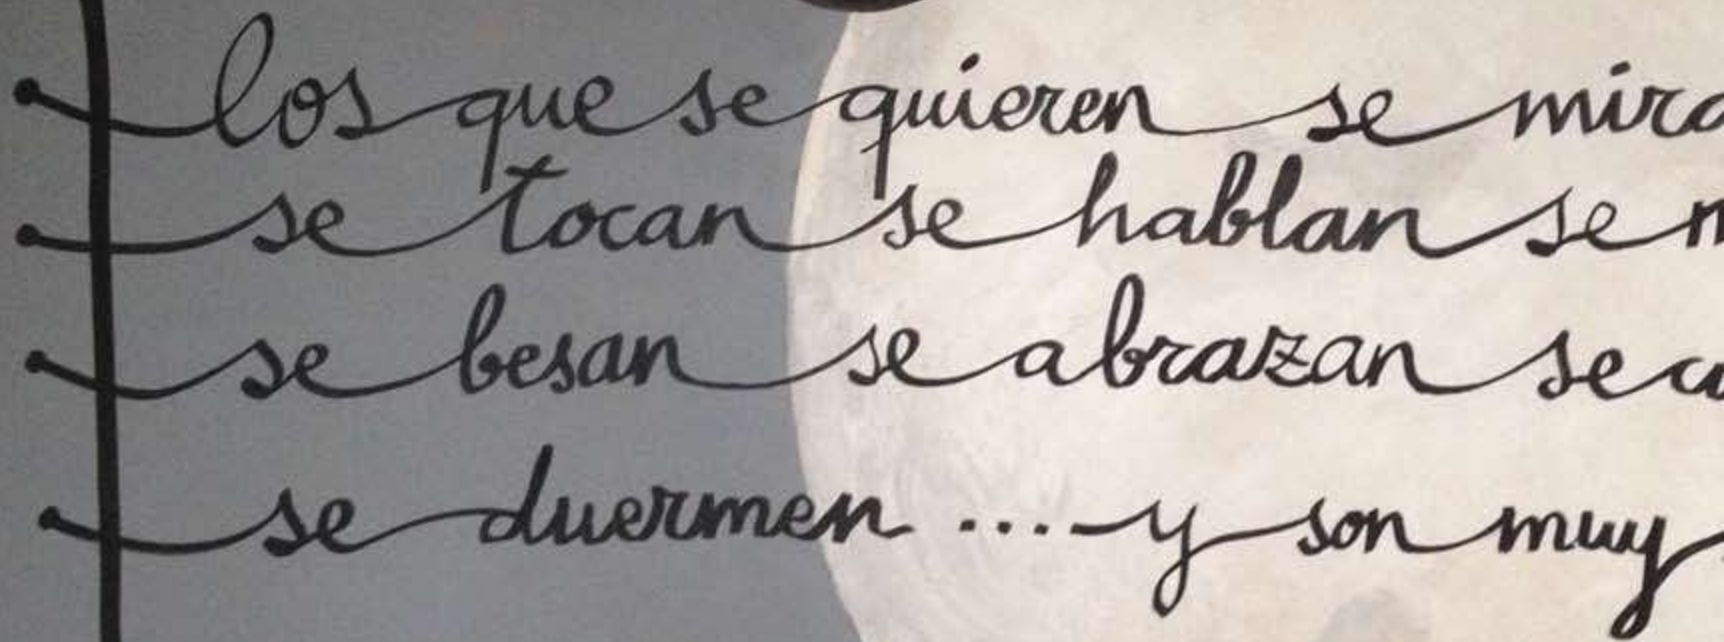 los que se quieren se
se tocan se hablan se
se besan se abrazan se
se duermen ... y son muy